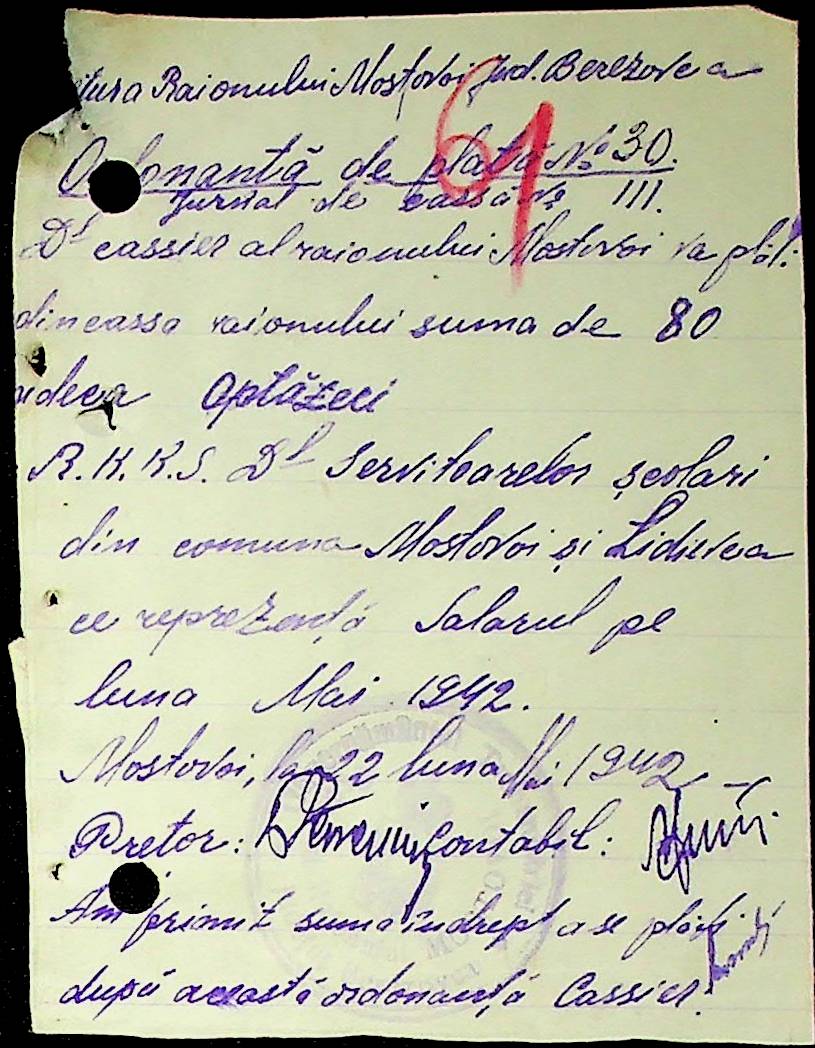 itura Raionului Mostovoi Jud. Berezovca
61
Ordonanță de plată No 30.
Jurnal de cassă No III.
Dl cassier al raionului Mostovoi va plăti
din cassa raionului suma de 80
adeca optăzeci
R.K.K.S. Dl Servitoarelor școlari
din comuna Mostovoi și Lidievca
ce reprezentă Salarul pe
luna Mai 1942.
Mostovoi, la 22 luna Mai 1942
Pretor: Contabil:
Am primit suma îndrept a se plăti
după această ordonanță Cassier: